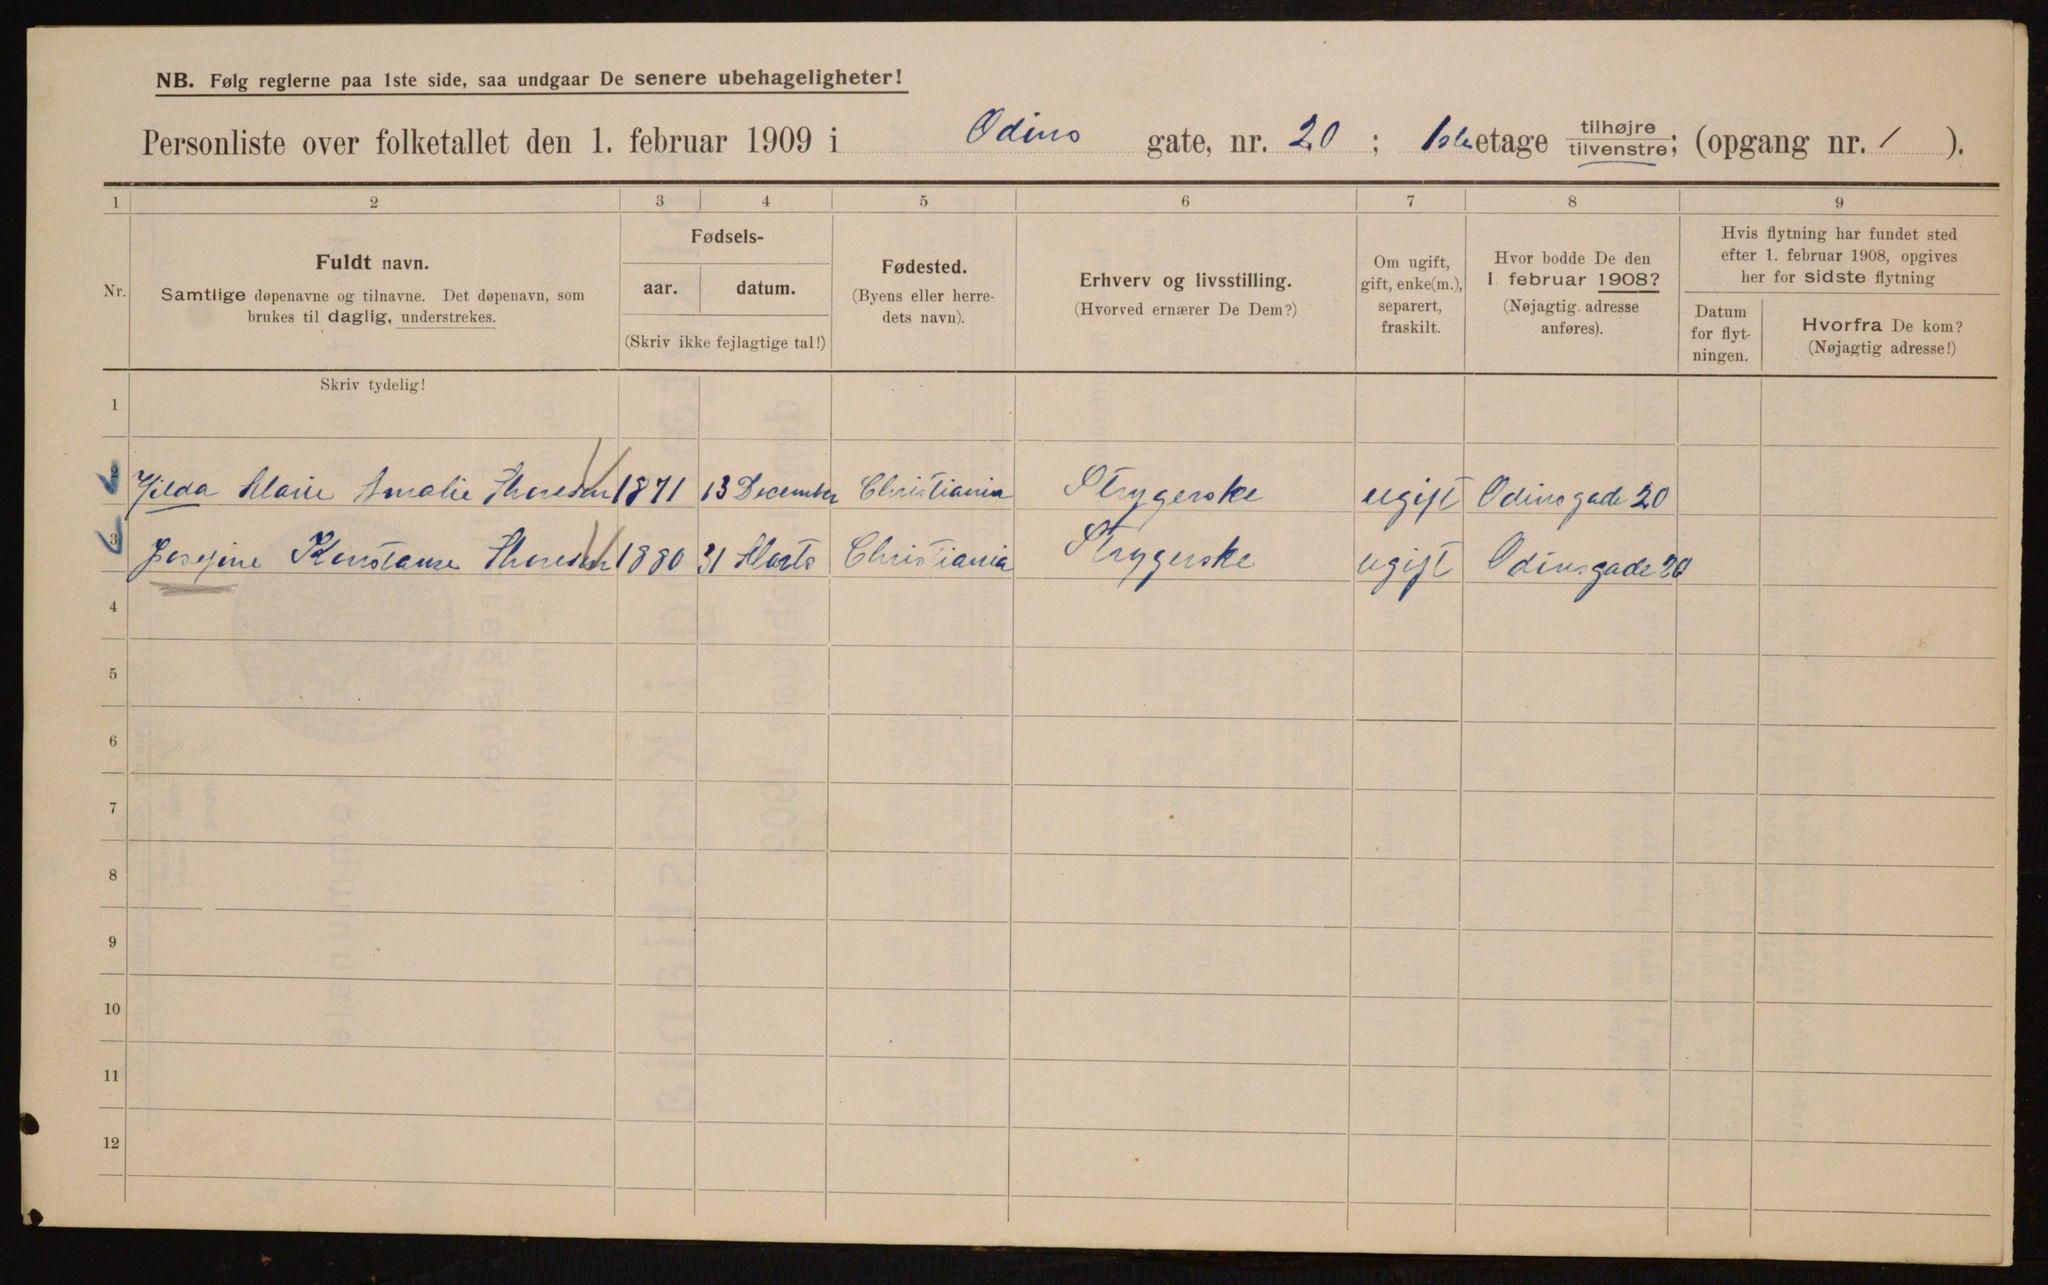 NB. Følg reglerne paa 1ste side, saa undgaar De senere ubehageligheter!
Personliste over folketallet den 1. februar 1909 i Odins gate, nr. 20 ; 1ste etage tilhøjre tilvenstre; (opgang nr. 1 ).
1 2 3 4 5 6 7 8 9
Nr.
Fuldt navn.
Samtlige døpenavne og tilnavne. Det døpenavn, som
brukes til daglig, understrekes.
Fødsels-
aar. datum.
(Skriv ikke fejlagtige tal!)
Fødested.
(Byens eller herre-
dets navn).
Erhverv og livsstilling.
(Hvorved ernærer De Dem?)
Om ugift,
gift, enke(m.),
separert,
fraskilt.
Hvor bodde De den
1. februar 1908?
(Nøjagtig adresse
anføres).
Hvis flytning har fundet sted
efter 1. februar 1908, opgives
her for sidste flytning
Datum
for flyt-
ningen.
Hvorfra De kom?
(Nøjagtig adresse!)
Skriv tydelig!
1
2 Hilda Marie Amalie Thoresen 1871 13 December Christiania Strygerske ugift Odinsgade 20
3 Josefine Konstanse Thoresen 1880 31 Marts Christiania Strygerske ugift Odinsgade 20
4
5
6
7
8
9
10
11
12